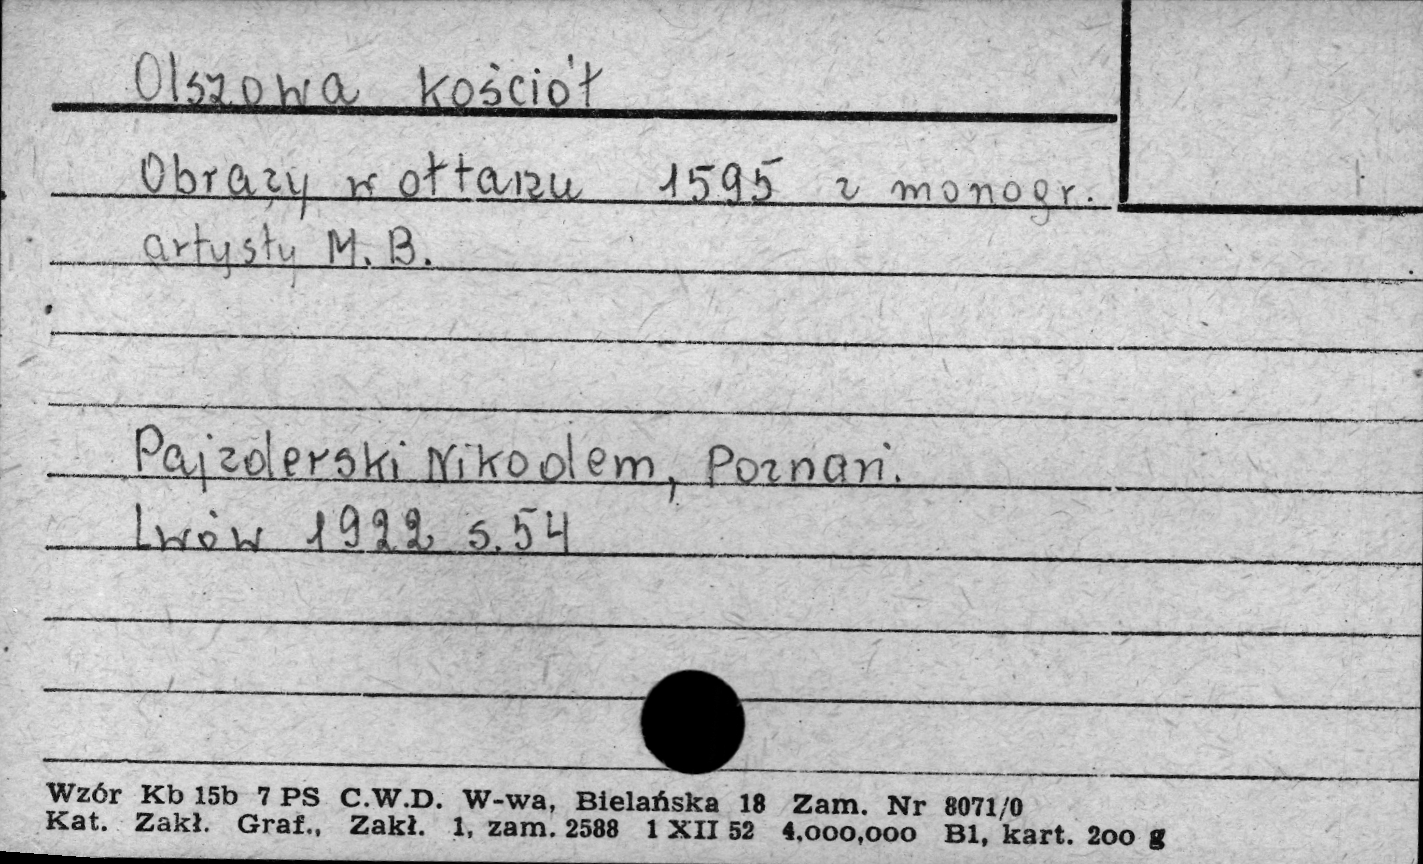 Olszowa kościół
Obrazy w ołtarzu 1595 z monogr.
artysty M. B.
Pajzderski Nikodem, Poznań.
Lwów 1922 s. 54
Wzór Kb 15b 7 PS C.W.D. W-wa, Bielańska 18 Zam. Nr 8071/0
Kat. Zakł. Graf., Zakł. 1, zam. 2588 1 XII 52 4,000,000 B1, kart. 200 g